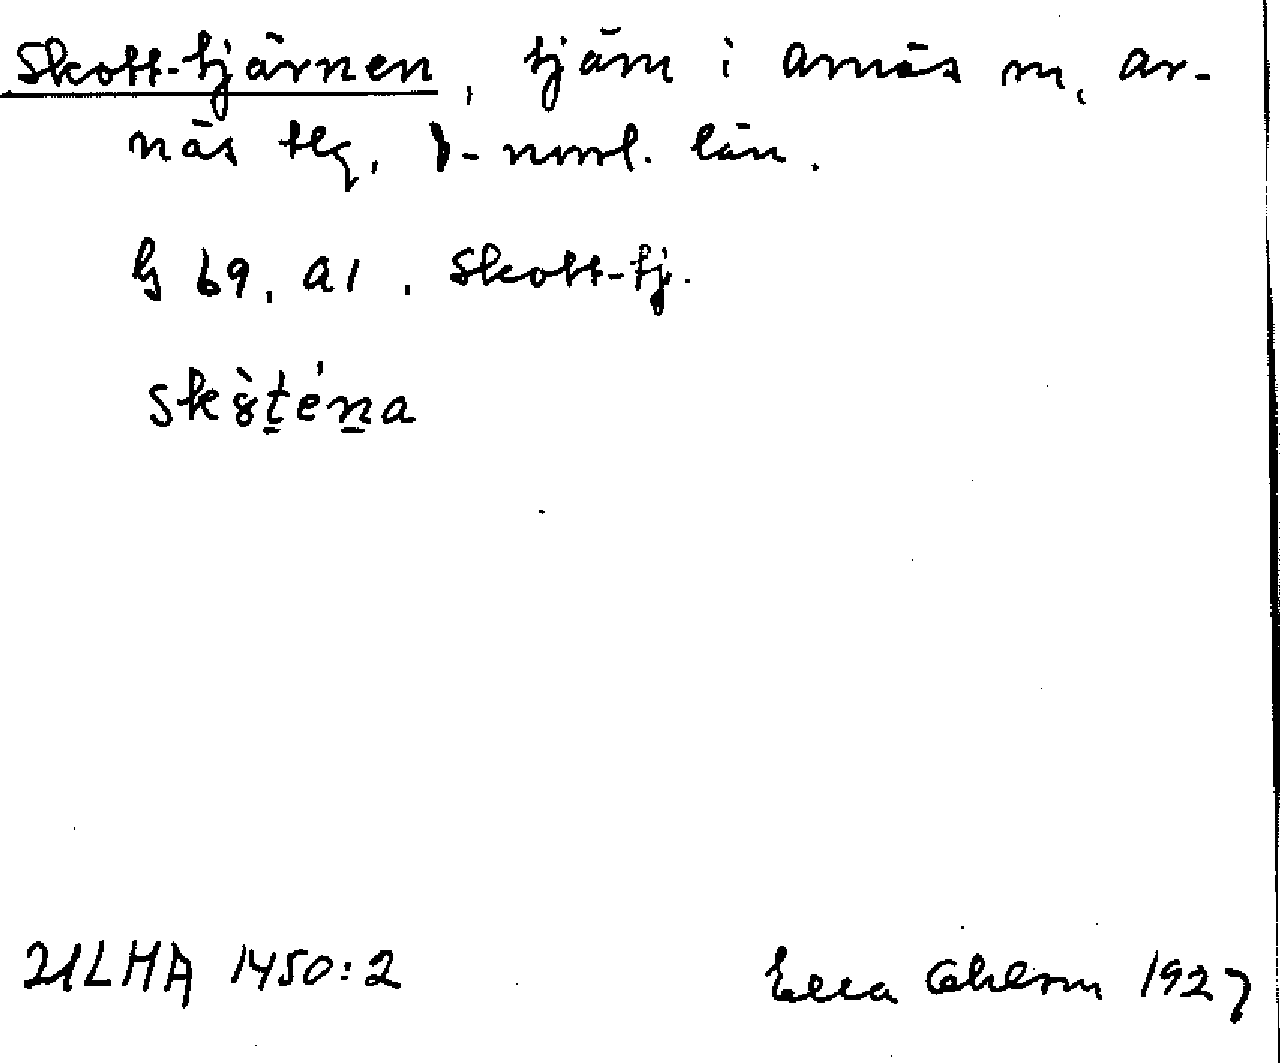 Skott-tjärnen, tjärn i Arnäs sn, Ar-
näs tlg, V-norrl. län.
G 69, a1. Skott-tj.
ULMA 1450:2 Ella Ohlson 1927